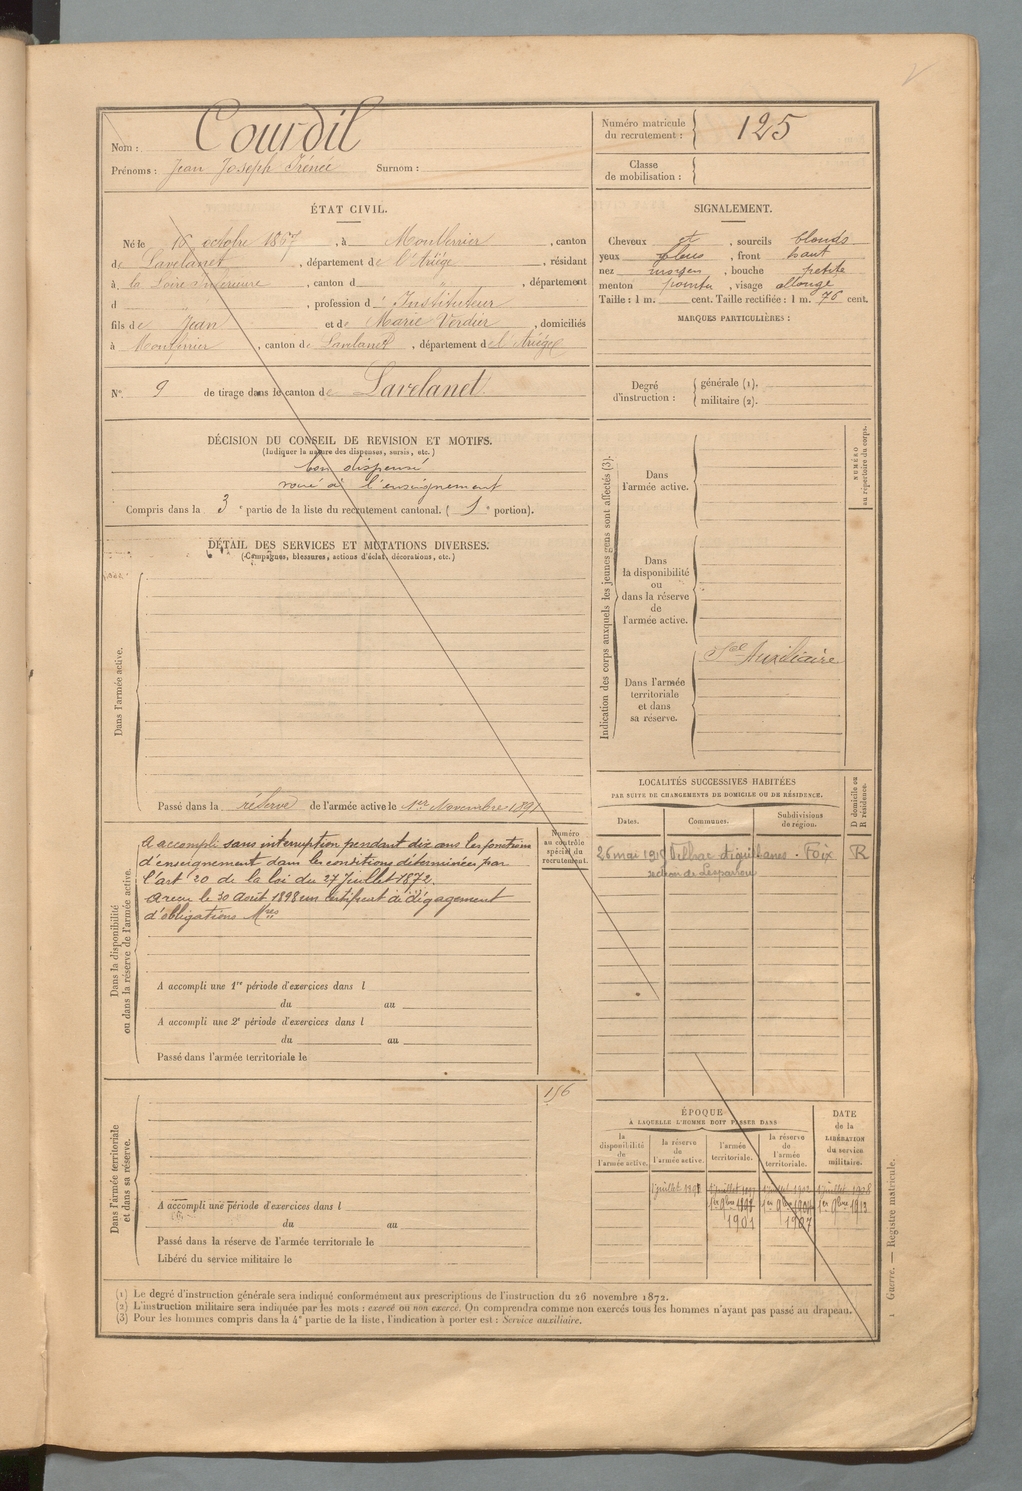 Nom : Courdil
Prénoms : Jean Joseph Irénée Surnom :
Numéro matricule du recrutement : 125
Classe de mobilisation :
ÉTAT CIVIL.
Né le 16 octobre 1867, à Montferrier, canton
de Lavelanet, département de l'Ariège, résidant
à la Loire Inférieure, canton d " , département
d , profession d'Instituteur
fils de Jean et de Marie Verdier, domiciliés
à Montferrier, canton de Lavelanet, département de l'Ariège
N° 9 de tirage dans le canton de Lavelanet
SIGNALEMENT.
Cheveux et , sourcils blonds
yeux bleus , front haut
nez moyen , bouche petite
menton pointu , visage allongé
Taille : 1 m. cent. Taille rectifiée : 1 m. 76 cent.
MARQUES PARTICULIÈRES :
Degré d'instruction : générale (1).
militaire (2).
DÉCISION DU CONSEIL DE REVISION ET MOTIFS.
(Indiquer la nature des dispenses, sursis, etc.)
bon dispensé
voué à l'enseignement
Compris dans la 3e partie de la liste du recrutement cantonal. ( 1e portion).
DÉTAIL DES SERVICES ET MUTATIONS DIVERSES.
(Campagnes, blessures, actions d'éclat, décorations, etc.)
Dans l'armée active.
Passé dans la réserve de l'armée active le 1er Novembre 1891
Indication des corps auxquels les jeunes gens sont affectés (3).
NUMÉRO au répertoire du corps.
Dans l'armée active.
Dans la disponibilité ou dans la réserve de l'armée active.
Dans l'armée territoriale et dans sa réserve.
Sce Auxiliaire
Dans la disponibilité ou dans la réserve de l'armée active.
A accompli sans interruption pendant dix ans les fonctions
d'enseignement dans les conditions déterminées par
l'art 20 de la loi du 27 juillet 1872.
A reçu le 30 Août 1898 un certificat de dégagement
d'obligations Mres
Numéro au contrôle spécial du recrutement.
A accompli une 1re période d'exercices dans l
du au
A accompli une 2e période d'exercices dans l
du au
Passé dans l'armée territoriale le
LOCALITÉS SUCCESSIVES HABITÉES
PAR SUITE DE CHANGEMENTS DE DOMICILE OU DE RÉSIDENCE.
D domicile ou R résidence.
Dates. Communes. Subdivisions de région.
26 mai 1919 Foix R
156
Dans l'armée territoriale et dans sa réserve.
A accompli une période d'exercices dans l
du au
Passé dans la réserve de l'armée territoriale le
Libéré du service militaire le
ÉPOQUE
À LAQUELLE L'HOMME DOIT PASSER DANS
DATE de la LIBÉRATION du service militaire.
la disponibilité de l'armée active.
la réserve de l'armée active.
l'armée territoriale.
la réserve de l'armée territoriale.
1901 1907
(1) Le degré d'instruction générale sera indiqué conformément aux prescriptions de l'instruction du 26 novembre 1872.
(2) L'instruction militaire sera indiquée par les mots : exercé ou non exercé. On comprendra comme non exercés tous les hommes n'ayant pas passé au drapeau.
(3) Pour les hommes compris dans la 4e partie de la liste, l'indication à porter est : Service auxiliaire.
Guerre. — Registre matricule.